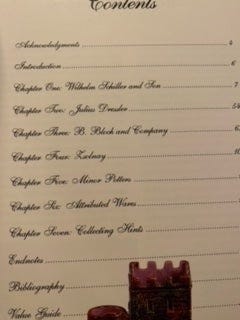 Contents
Acknowledgments 4
Introduction 6
Chapter One: Wilhelm Schiller and Son 7
Chapter Two: Julius Dressler 54
Chapter Three: B. Bloch and Company 62
Chapter Four: Zsolnay 10
Chapter Five: Minor Potters
Chapter Six: Attributed Wares
Chapter Seven: Collecting Hints
Endnotes
Bibliography
Value Guide